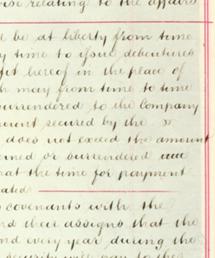 relating to the affairs
be at liberty from time
y time to issue debentures
hereof in the place of
h may from time to time
surrendered to the Company
secured by the
does not exceed the amount
or surrendered
at the time for payment
covenants with the
nd their assigns that the
nd every year during the
security will pay to the